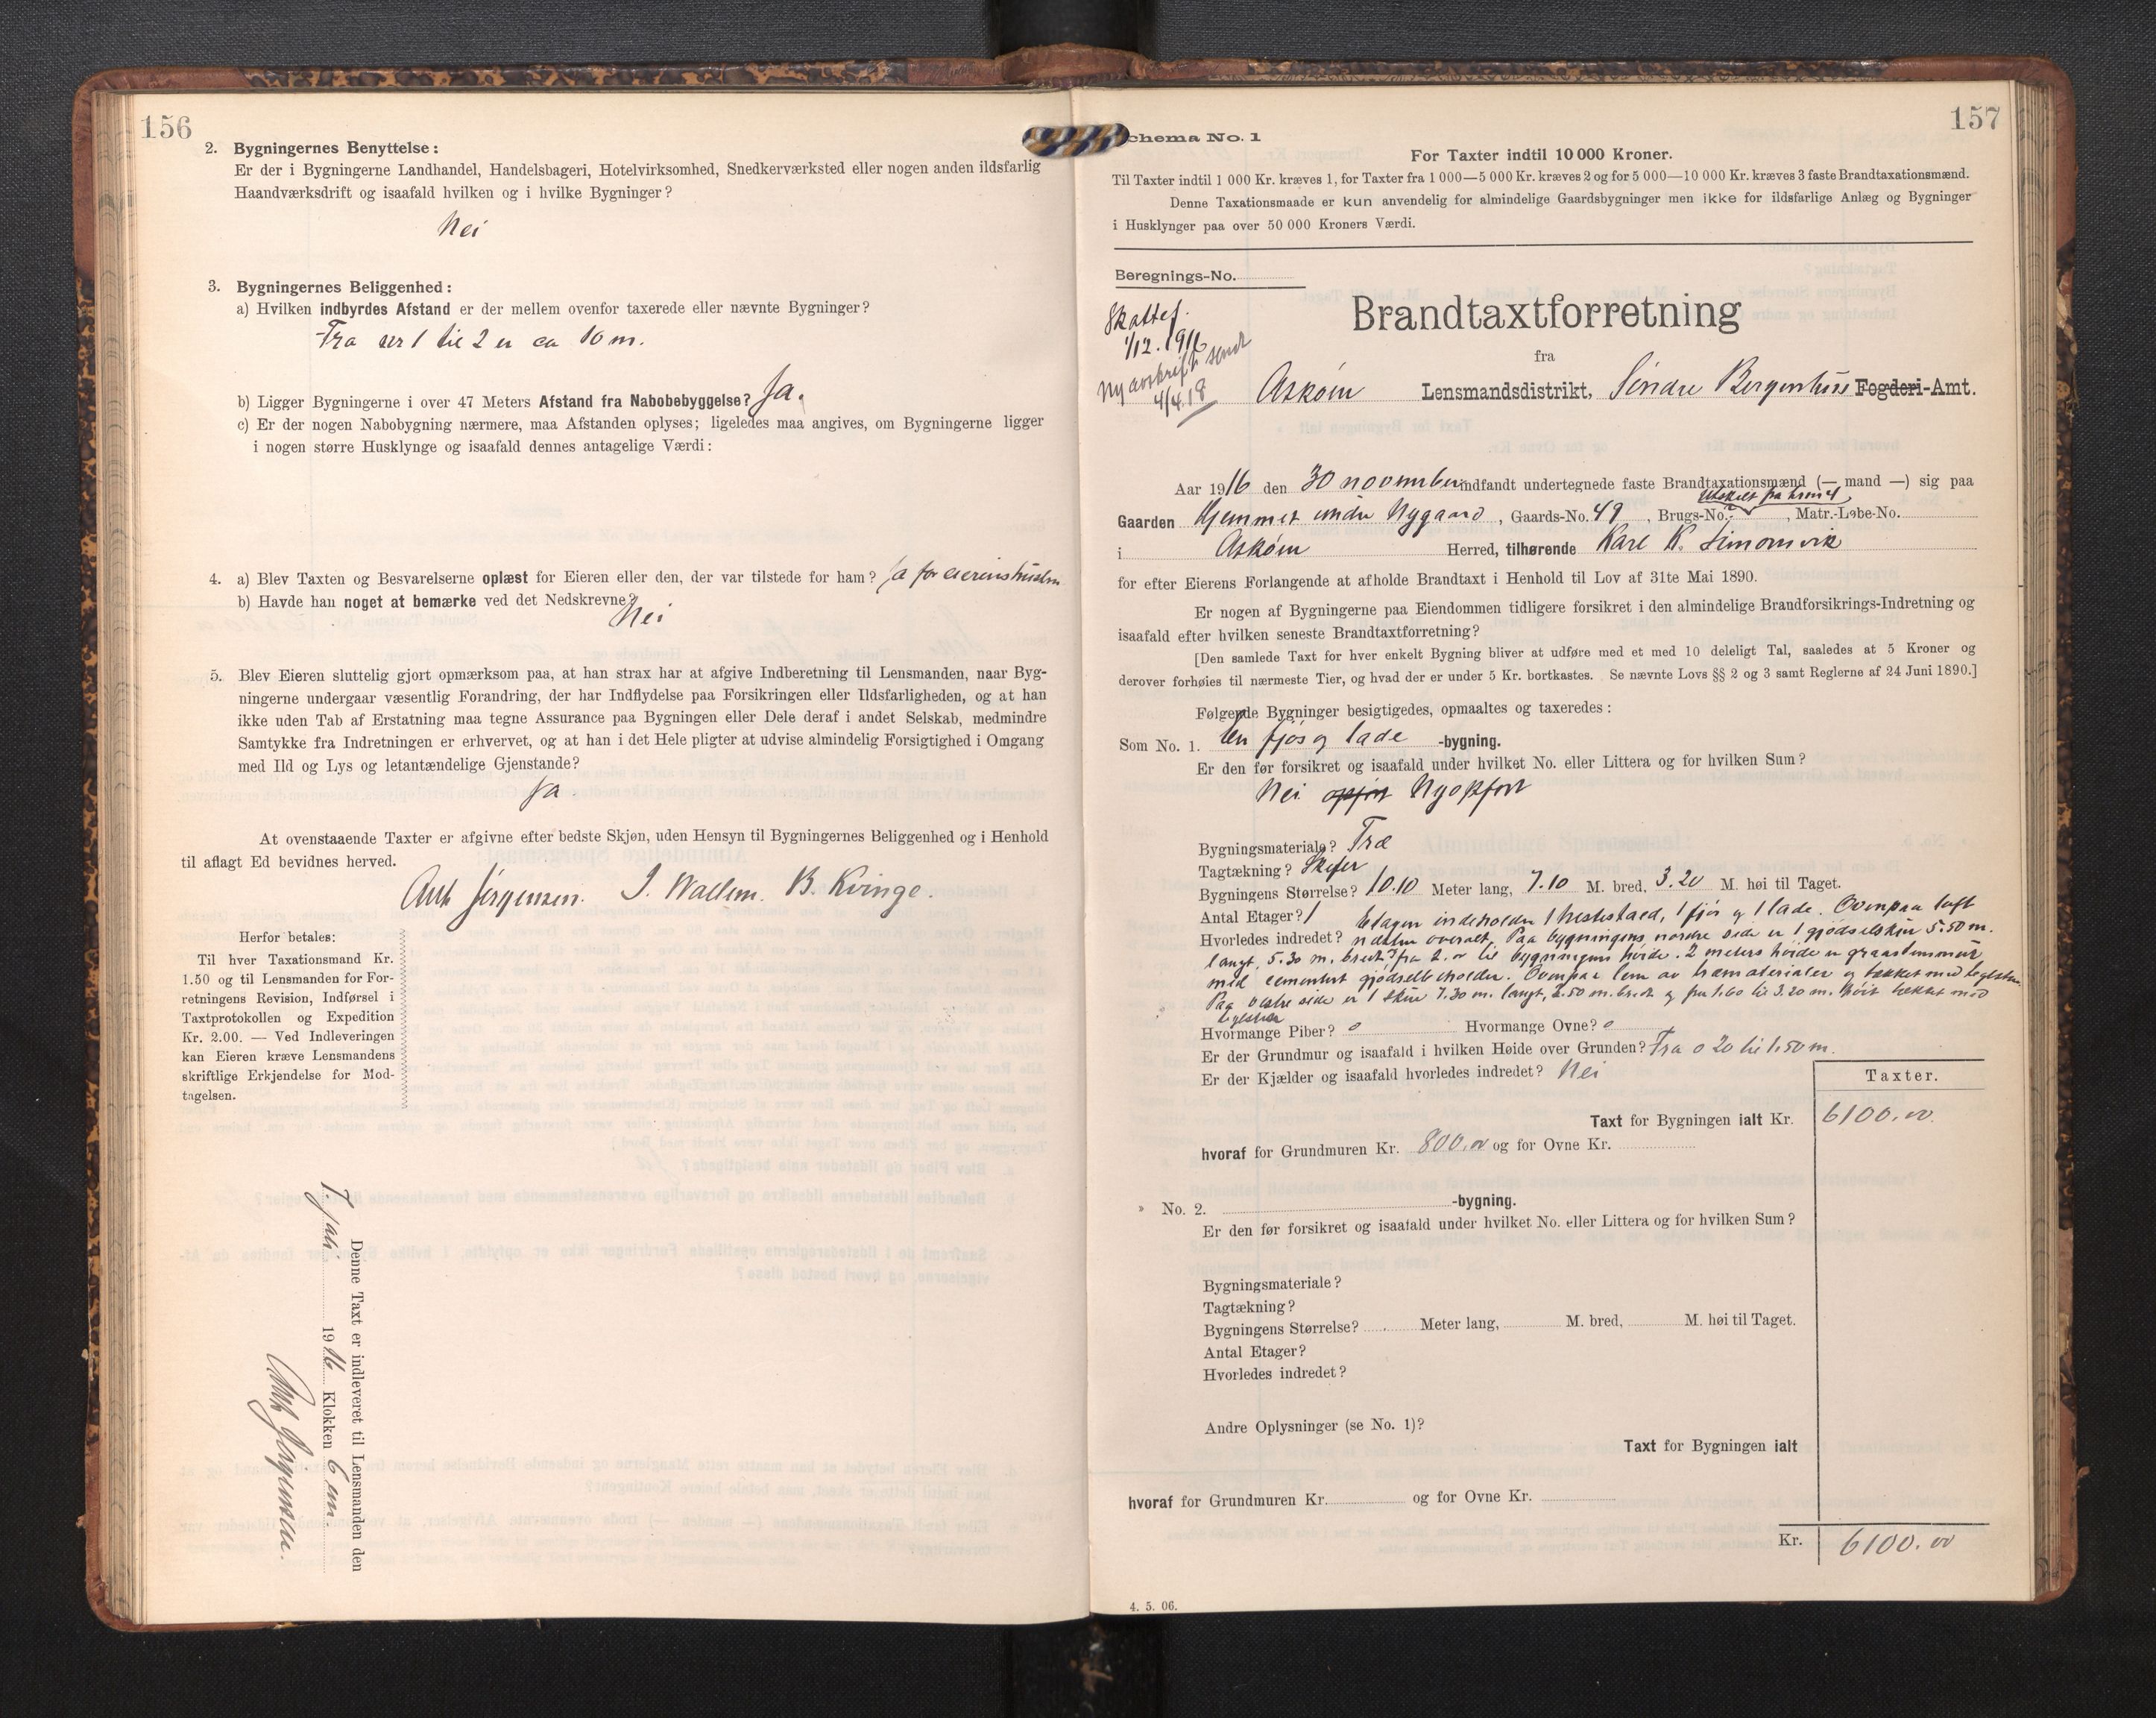 156
2. Bygningernes Benyttelse:
Er der i Bygningerne Landhandel, Handelsbageri, Hotelvirksomhed, Snedkerværksted eller nogen anden ildsfarlig
Haandværksdrift og isaafald hvilken og i hvilke Bygninger?
Nei
3. Bygningernes Beliggenhed:
a) Hvilken indbyrdes Afstand er der mellem ovenfor taxerede eller nævnte Bygninger?
Fra nr 1 til 2 er ca 10 m.
b) Ligger Bygningerne i over 47 Meters Afstand fra Nabobebyggelse? Ja.
c) Er der nogen Nabobygning nærmere, maa Afstanden oplyses; ligeledes maa angives, om Bygningerne ligger
i nogen større Husklynge og isaafald dennes antagelige Værdi:
4. a) Blev Taxten og Besvarelserne oplæst for Eieren eller den, der var tilstede for ham? Ja for eierens
b) Havde han noget at bemærke ved det Nedskrevne?
Nei
5. Blev Eieren sluttelig gjort opmærksom paa, at han strax har at afgive Indberetning til Lensmanden, naar Byg-
ningerne undergaar væsentlig Forandring, der har Indflydelse paa Forsikringen eller Ildsfarligheden, og at han
ikke uden Tab af Erstatning maa tegne Assurance paa Bygningen eller Dele deraf i andet Selskab, medmindre
Samtykke fra Indretningen er erhvervet, og at han i det Hele pligter at udvise almindelig Forsigtighed i Omgang
med Ild og Lys og letantændelige Gjenstande?
Ja
At ovenstaaende Taxter er afgivne efter bedste Skjøn, uden Hensyn til Bygningernes Beliggenhed og i Henhold
til aflagt Ed bevidnes herved.
Ant Jørgensen. J. Wallem. B. Kvinge.
Herfor betales:
Til hver Taxationsmand Kr.
1.50 og til Lensmanden for For-
retningens Revision, Indførsel i
Taxtprotokollen og Expedition
Kr. 2.00. — Ved Indleveringen
kan Eieren kræve Lensmandens
skriftlige Erkjendelse for Mod-
tagelsen.
Denne Taxt er indleveret til Lensmanden den
7 juli 1916 Klokken 6 em.
Ant Jørgensen.
157
Schema No. 1
For Taxter indtil 10 000 Kroner.
Til Taxter indtil 1 000 Kr. kræves 1, for Taxter fra 1 000—5 000 Kr. kræves 2 og for 5 000—10 000 Kr. kræves 3 faste Brandtaxationsmænd.
Denne Taxationsmaade er kun anvendelig for almindelige Gaardsbygninger men ikke for ildsfarlige Anlæg og Bygninger
i Husklynger paa over 50 000 Kroners Værdi.
Beregnings-No.
Skattef.
1/12. 1916
Ny avskrift sendt
4/4.18
Brandtaxtforretning
fra
Askøen Lensmandsdistrikt, Søndre Bergenhus Fogderi-Amt.
Aar 1916 den 30 november indfandt undertegnede faste Brandtaxationsmænd (— mand —) sig paa
Utskilt fra brno 4
Gaarden Hjemmet under Nygaard, Gaards-No. 49, Brugs-No. , Matr.-Løbe-No.
i Askøen Herred, tilhørende Karl K. Simonsvik
for efter Eierens Forlangende at afholde Brandtaxt i Henhold til Lov af 31te Mai 1890.
Er nogen af Bygningerne paa Eiendommen tidligere forsikret i den almindelige Brandforsikrings-Indretning og
isaafald efter hvilken seneste Brandtaxtforretning?
[Den samlede Taxt for hver enkelt Bygning bliver at udføre med et med 10 deleligt Tal, saaledes at 5 Kroner og
derover forhøies til nærmeste Tier, og hvad der er under 5 Kr. bortkastes. Se nævnte Lovs §§ 2 og 3 samt Reglerne af 24 Juni 1890.]
Følgende Bygninger besigtigedes, opmaaltes og taxeredes:
Som No. 1. En fjøs og lade -bygning.
Er den før forsikret og isaafald under hvilket No. eller Littera og for hvilken Sum?
Nei opført Nyopført
Bygningsmateriale? Træ
Tagtækning? Skifer
Bygningens Størrelse? 10.10 Meter lang, 7.10 M. bred, 3.20 M. høi til Taget.
Antal Etager? 1 Etagen indeholder 1 hestestald, 1 fjøs og 1 lade. Ovenpaa loft
Hvorledes indredet? overalt. Paa bygningens nordre side er 1 gjødselskur 5.50 m.
langt, 5.30 m. bredt og fra 2.00 til bygningens høide. 2 meters høide er graastensmur
med cementert gjødselbeholder. Ovenpaa lem av træmaterialer og tækket med teglsten.
Paa østre side er 1 skur 7.30 m. langt, 2.50 m. bredt og fra 1.60 til 3.20 m. høit tækket med
teglsten
Hvormange Piber? 0 Hvormange Ovne? 0
Er der Grundmur og isaafald i hvilken Høide over Grunden? Fra 0 20 til 1.50 m.
Er der Kjælder og isaafald hvorledes indredet? Nei
Taxter.
Taxt for Bygningen ialt Kr. 6100.00
hvoraf for Grundmuren Kr. 800.00 og for Ovne Kr.
» No. 2. -bygning.
Er den før forsikret og isaafald under hvilket No. eller Littera og for hvilken Sum?
Bygningsmateriale?
Tagtækning?
Bygningens Størrelse? Meter lang, M. bred, M. høi til Taget.
Antal Etager?
Hvorledes indredet?
Andre Oplysninger (se No. 1)?
Taxt for Bygningen ialt
hvoraf for Grundmuren Kr. og for Ovne Kr.
Kr. 6100.00
4. 5. 06.